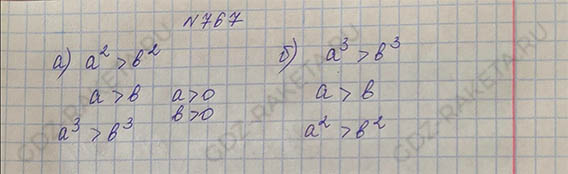 N767
а) a² > b²
a > b a > 0
b > 0
a³ > b³
б) a³ > b³
a > b
a² > b²
GDZ-RAKETA.RU